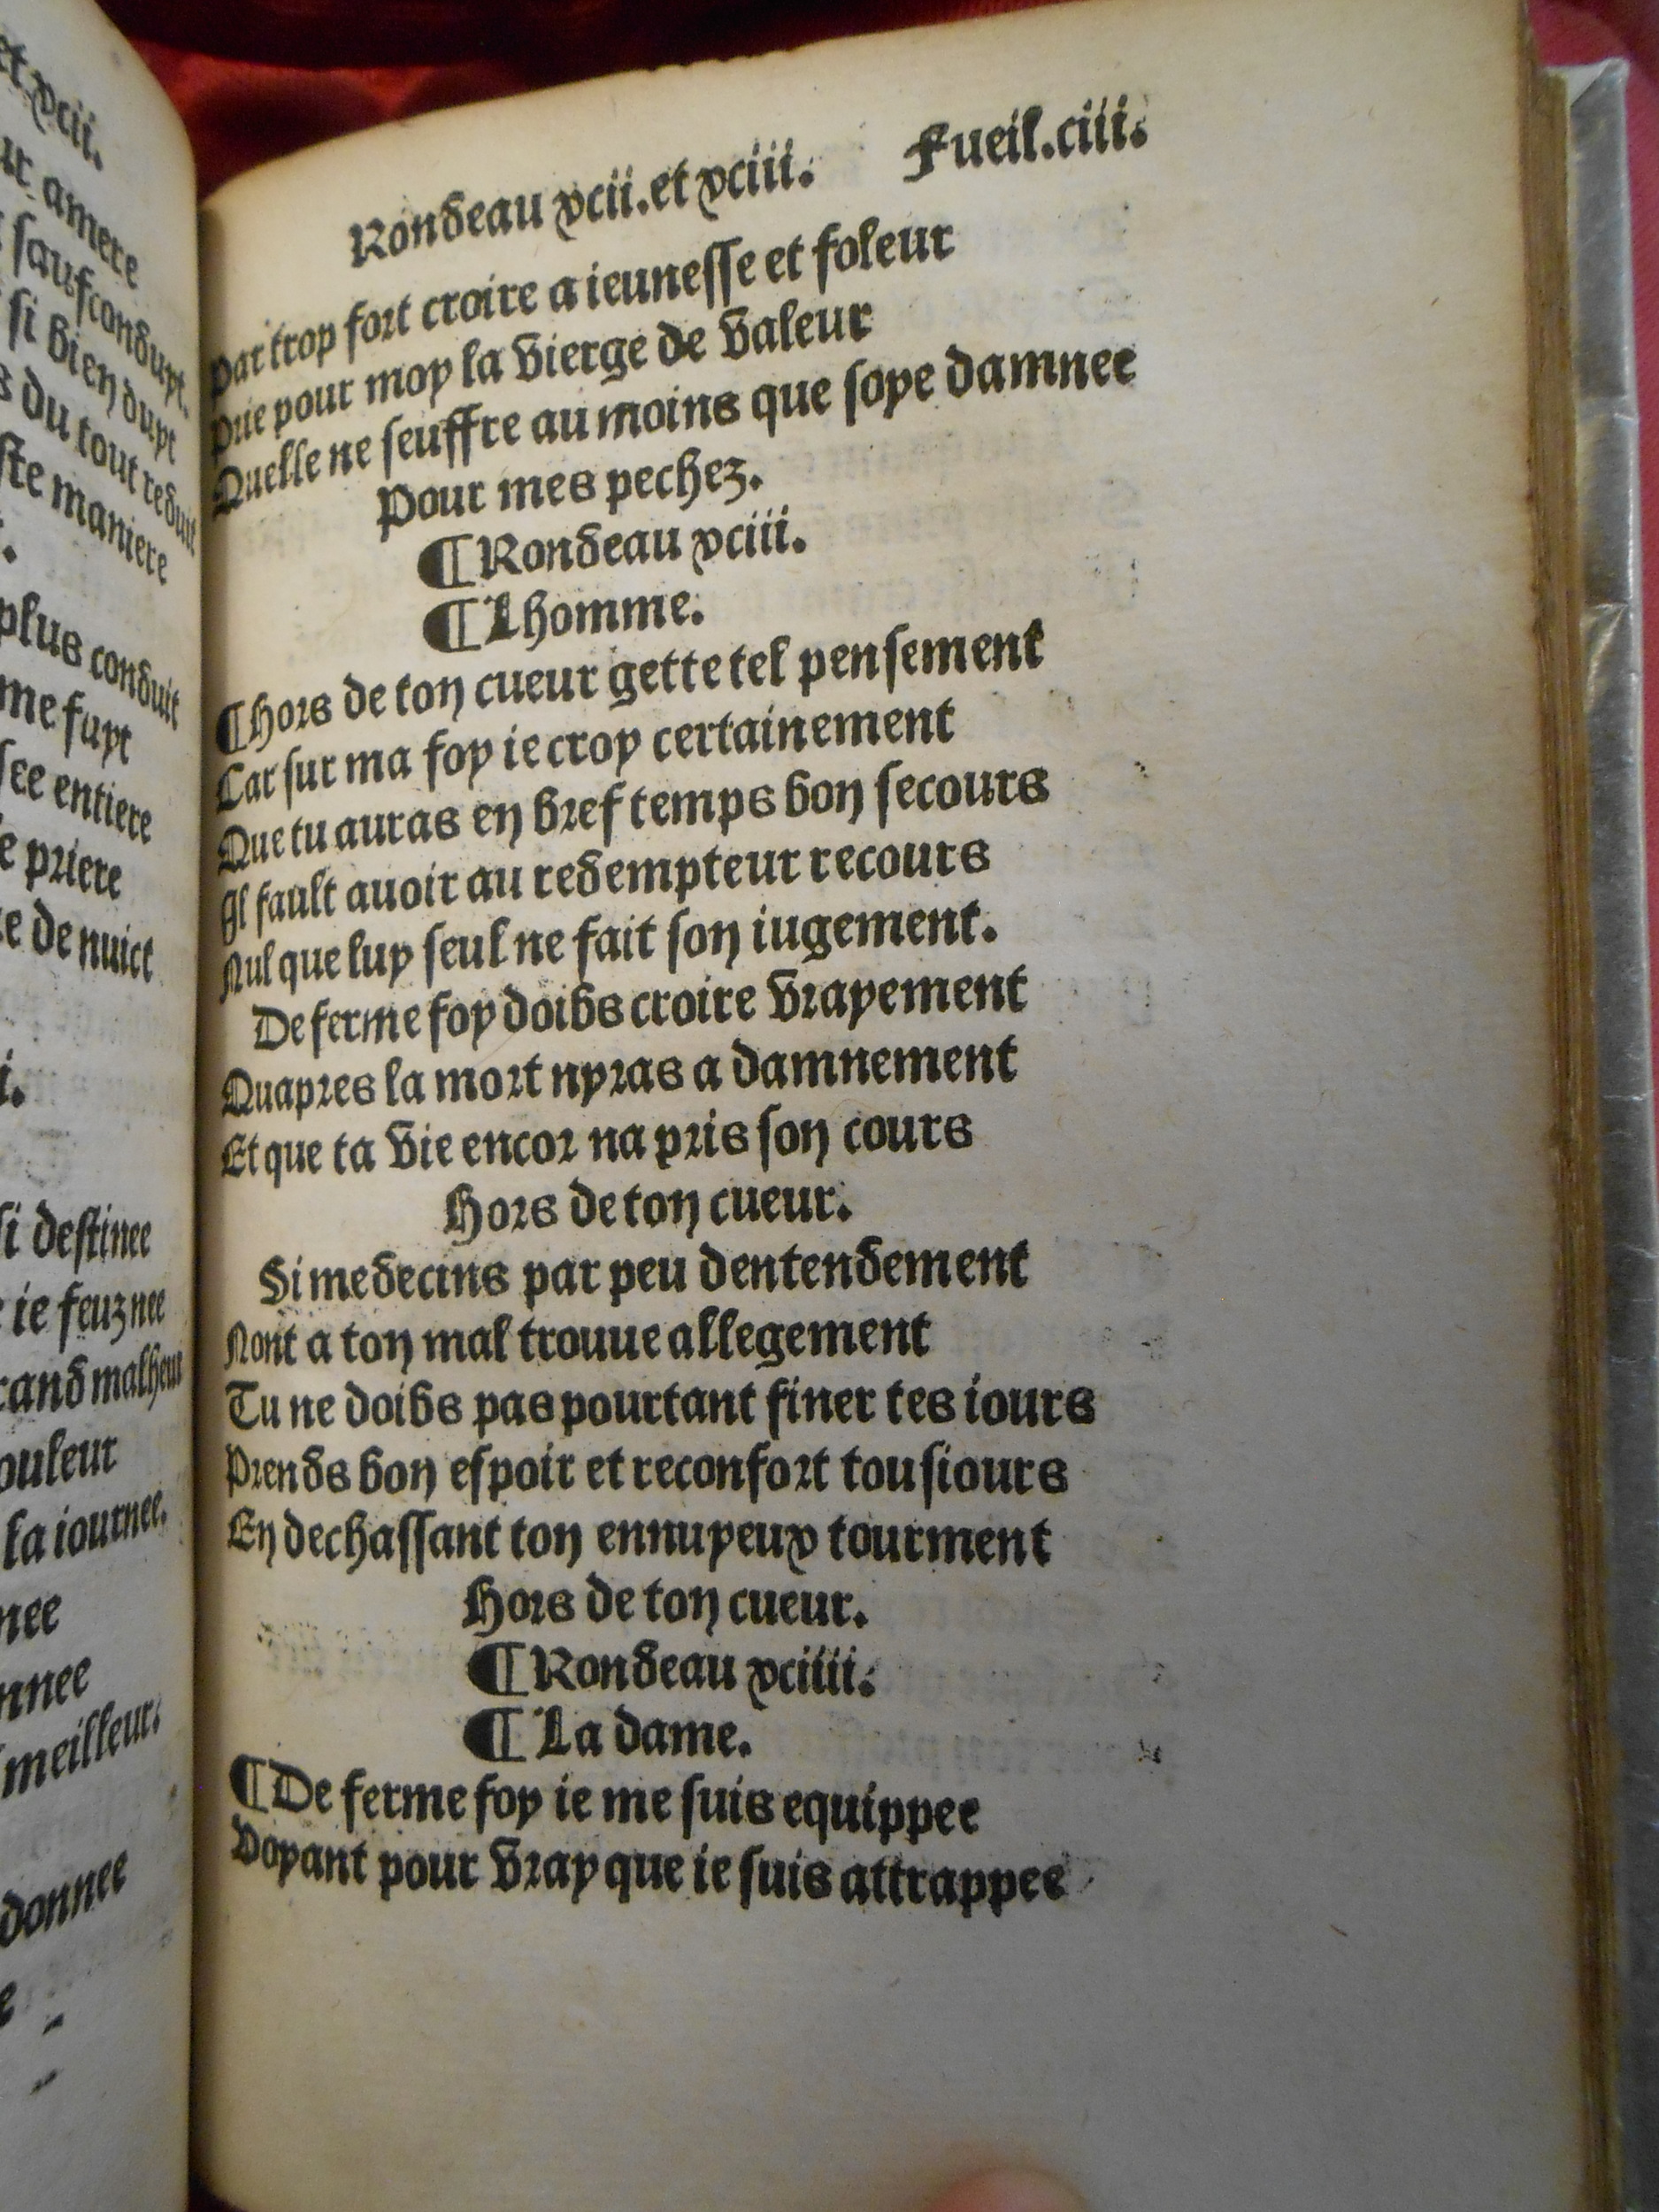 et xcii.
amere
saufconduyt.
si bien duyt
du tout reduit
maniere
plus conduit
me fuyt
entiere
priere
de nuict
si destinee
ie feuz nee
malheur
la iournee.
meilleur.
donnee
Rondeau xcii. et xciii. Fueil. ciii.
Par trop fort croire a ieunesse et foleur
Prie pour moy la vierge de valeur
Quelle ne seuffre au moins que soye damnee
Pour mes pechez.
¶ Rondeau xciii.
¶ Lhomme.
¶ Hors de ton cueur gette tel pensement
Car sur ma foy ie croy certainement
Que tu auras en bref temps bon secours
Il fault auoir au redempteur recours
Nul que luy seul ne fait son iugement.
De ferme foy doibs croire vrayement
Quapres la mort nyras a damnement
Et que ta vie encor na pris son cours
Hors de ton cueur.
Si medecins par peu dentendement
Nont a ton mal trouue allegement
Tu ne doibs pas pourtant finer tes iours
Prends bon espoir et reconfort tousiours
En dechassant ton ennuyeux tourment
Hors de ton cueur.
¶ Rondeau xciiii.
¶ La dame.
¶ De ferme foy ie me suis equippee
Voyant pour vray que ie suis attrappee